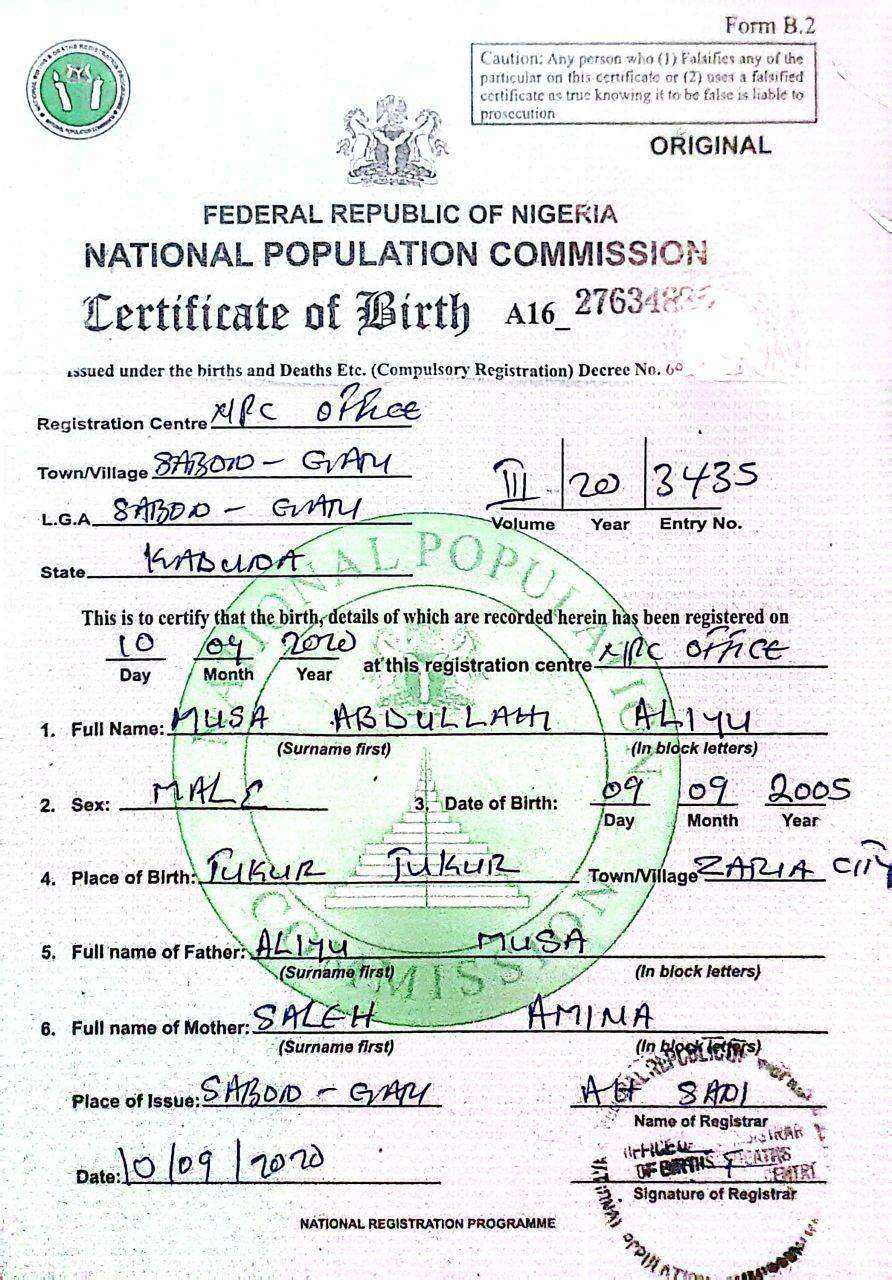 Form B.2
Caution: Any person who (1) Falsifies any of the
particular on this certificate or (2) uses a falsified
certificate as true knowing it to be false is liable to
prosecution
ORIGINAL
FEDERAL REPUBLIC OF NIGERIA
NATIONAL POPULATION COMMISSION
Certificate of Birth A16_ 27634
issued under the births and Deaths Etc. (Compulsory Registration) Decree No.
Registration Centre NPC OFFICE
Town/Village SABON - GARI
L.G.A. SABON - GARI
III 20 3435
Volume Year Entry No.
State KADUNA
This is to certify that the birth, details of which are recorded herein has been registered on
10 09 2020 at this registration centre NPC OFFICE
Day Month Year
1. Full Name: MUSA ABDULLAHI ALIYU
(Surname first) (In block letters)
2. Sex: MALE 3. Date of Birth: 09 09 2005
Day Month Year
4. Place of Birth: TUKUR TUKUR Town/Village ZARIA CITY
5. Full name of Father: ALIYU MUSA
(Surname first) (In block letters)
6. Full name of Mother: SALEH AMINA
(Surname first) (In block letters)
Place of Issue: SABON - GARI
Name of Registrar
Date: 10/09/2020
Signature of Registrar
NATIONAL REGISTRATION PROGRAMME
NATIONAL POPULATION COMMISSION